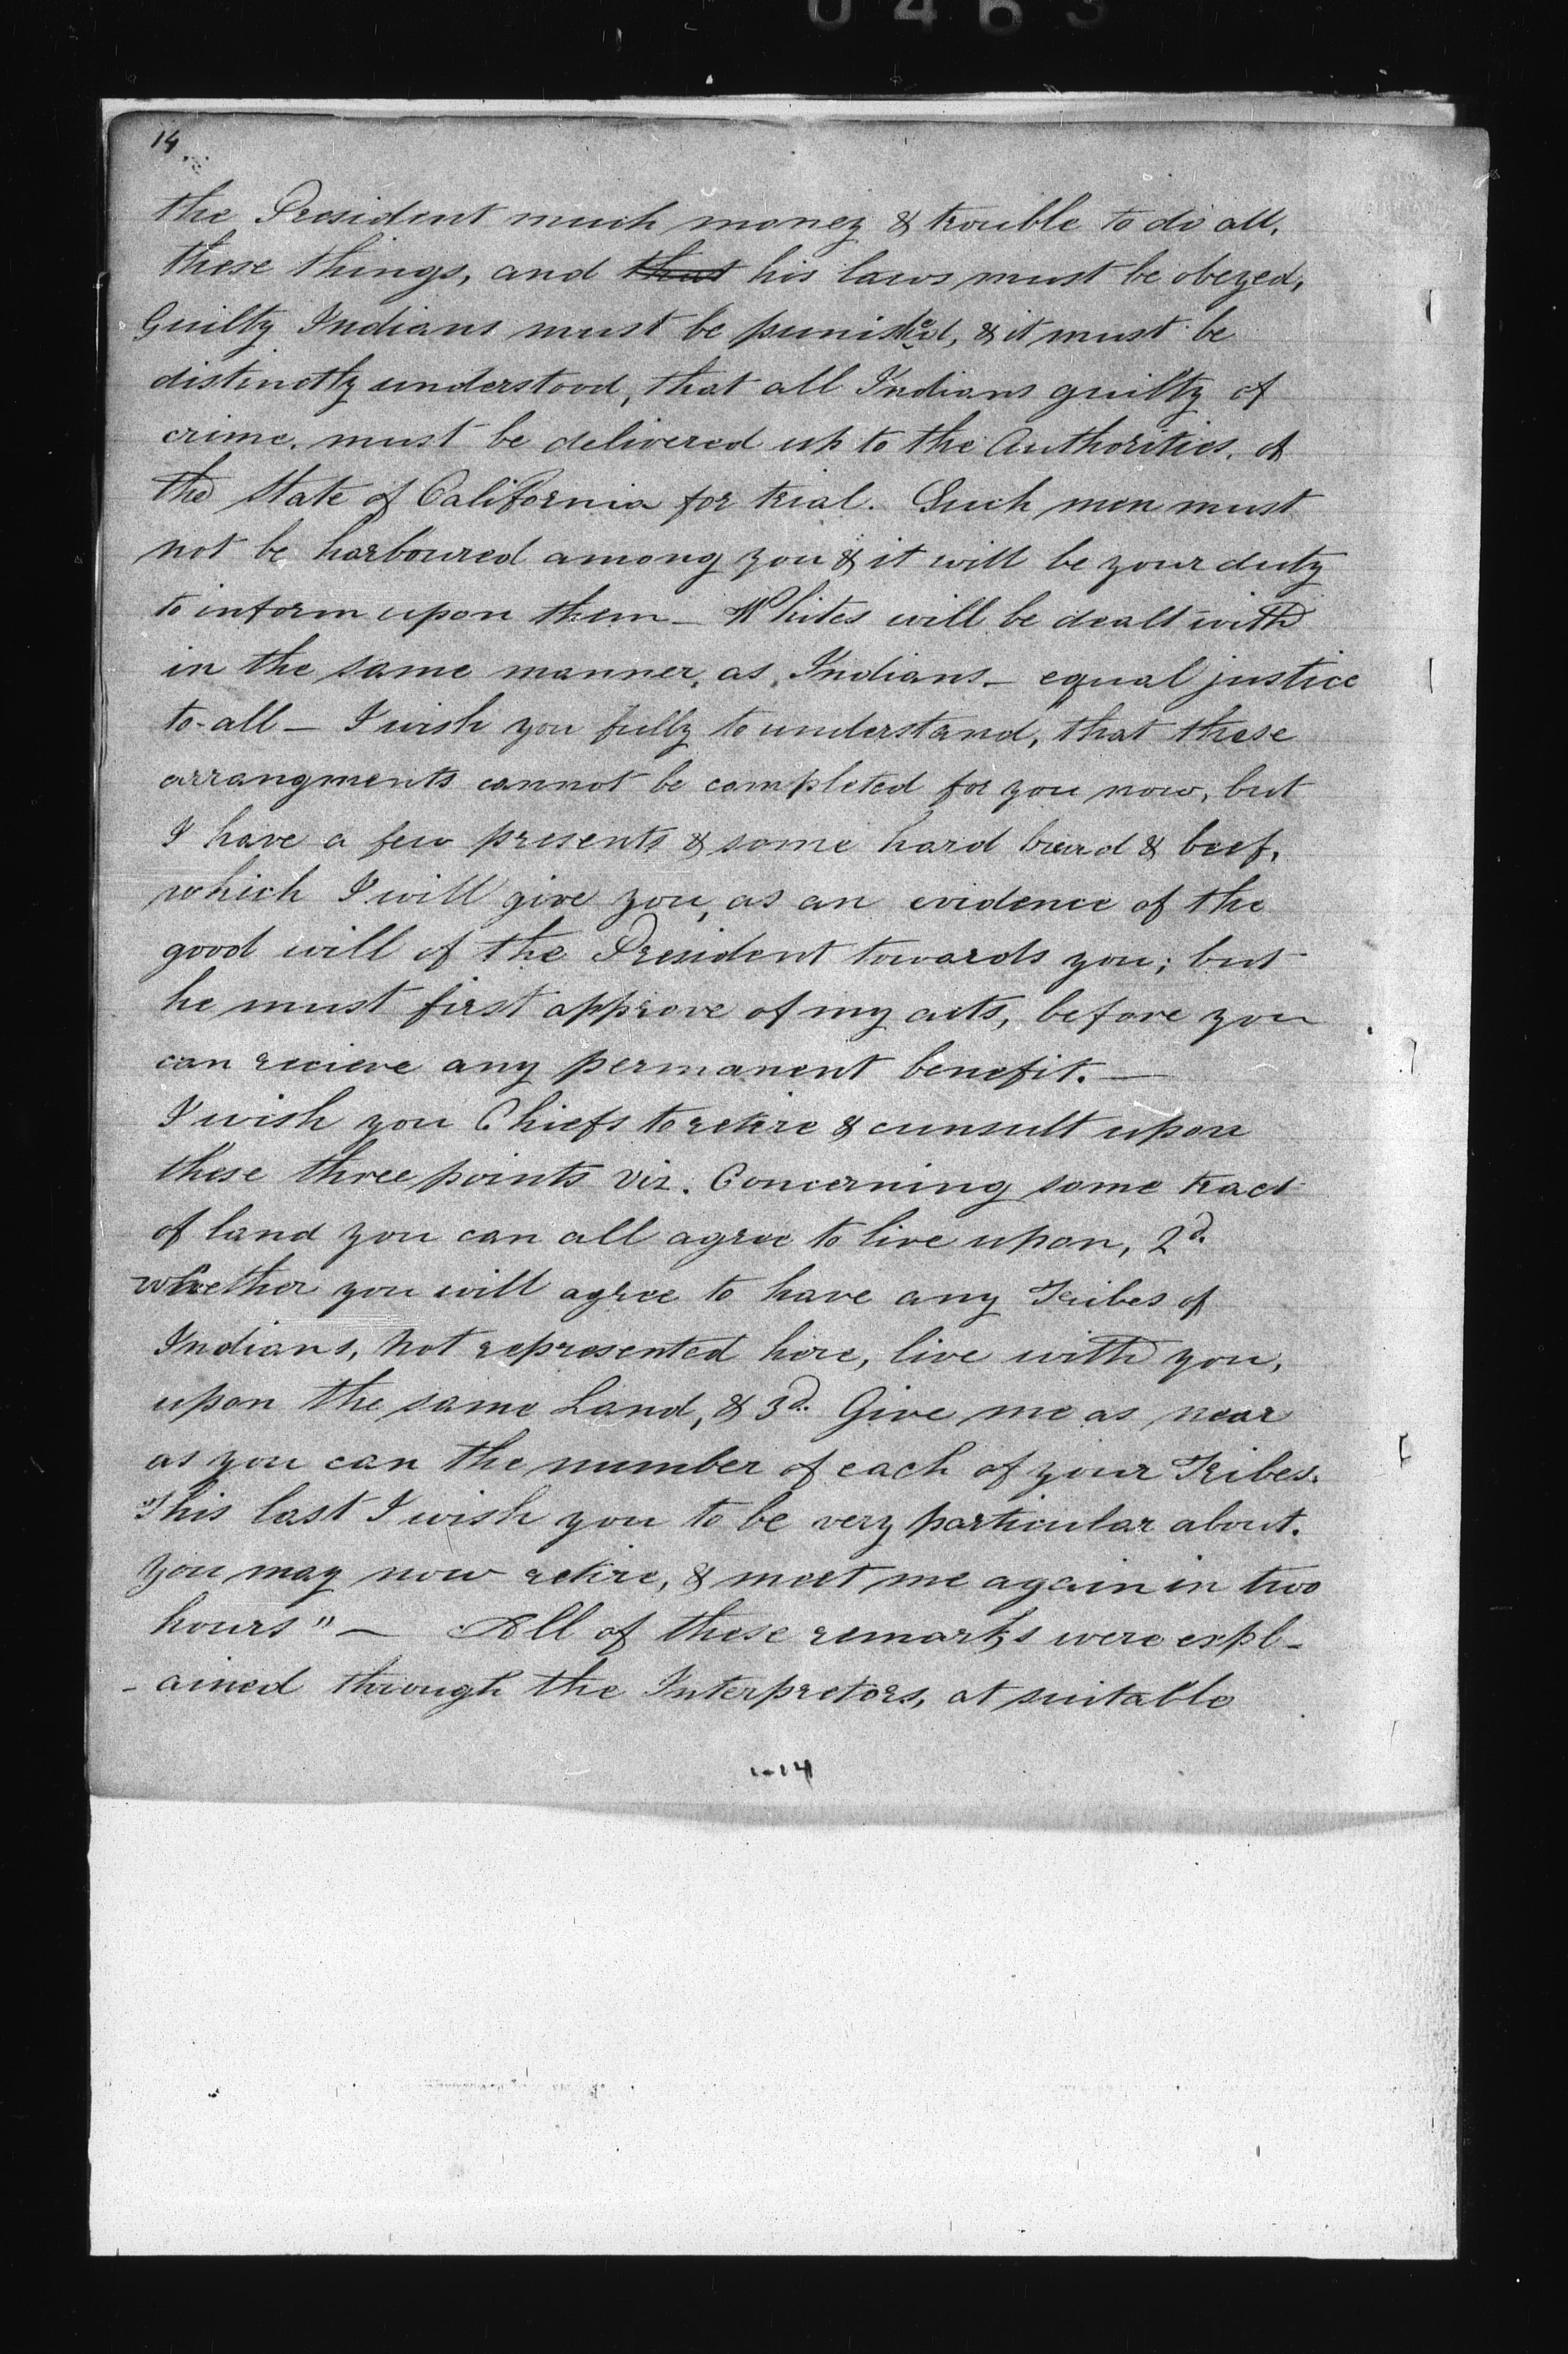 0463
14
the President much money & trouble to do all,
these things, and that his laws must be obeyed,
Guilty Indians must be punished, & it must be
distinctly understood, that all Indians guilty of
crime, must be delivered up to the Authorities, of
the State of California for trial. Such men must
not be harboured among you & it will be your duty
to inform upon them_ Whites will be dealt with
in the same manner, as, Indians_ equal justice
to-all_ I wish you fully to understand, that these
arrangments cannot be completed for you now, but
I have a few presents & some hard bread & beef,
which I will give you, as an evidence of the
good will of the President towards you; but
he must first approve of my acts, before you
can recieve any permanent benefit. —
I wish you Chiefs to retire & cunsult upon
these three points viz. Concerning some tract
of land you can all agree to live upon, 2d.
whether you will agree to have any Tribes of
Indians, not represented here, live with you,
upon the same Land, & 3d. Give me as near
as you can the number of each of your Tribes.
This last I wish you to be very particular about.
you may now retire, & meet me again in two
hours" — All of these remarks were expl-
-ained through the Interpretors, at suitable
1-14